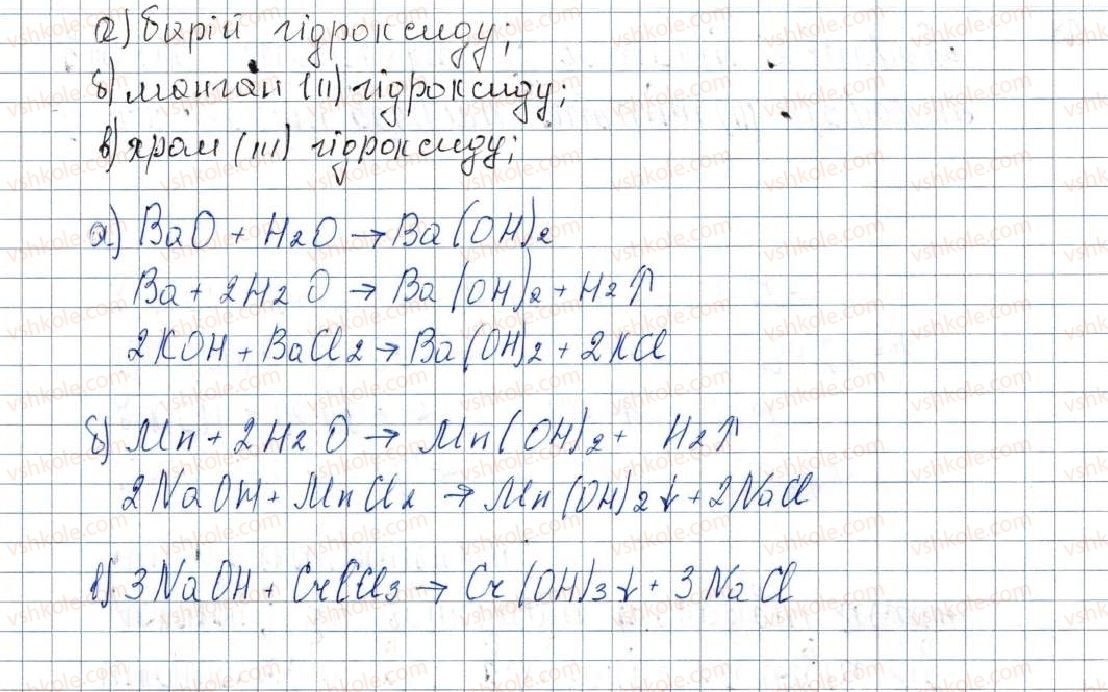 а) барій гідроксиду;
б) манган (II) гідроксиду;
в) хром (III) гідроксиду;
а) BaO + H2O → Ba(OH)2
Ba + 2H2O → Ba(OH)2 + H2↑
2KOH + BaCl2 → Ba(OH)2 + 2KCl
б) Mn + 2H2O → Mn(OH)2 + H2↑
2NaOH + MnCl2 → Mn(OH)2↓ + 2NaCl
в) 3NaOH + CrCl3 → Cr(OH)3↓ + 3NaCl
vshkole.com